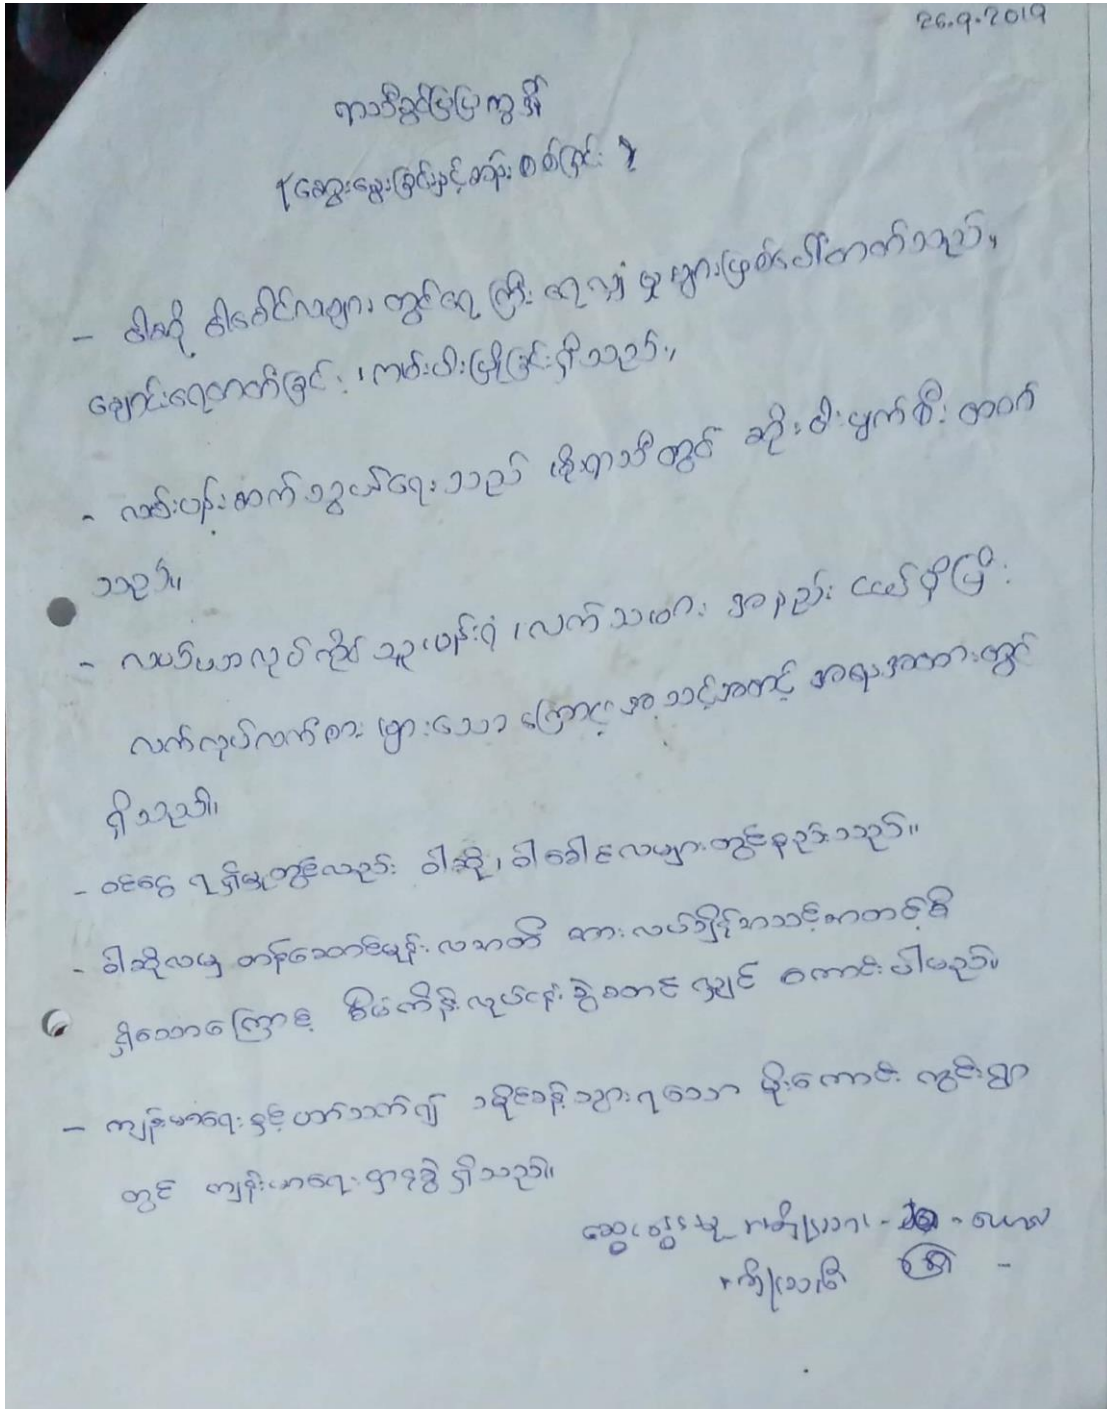 26.9.2019
ရာသီခွင်ပြပြက္ခဒိန်
(ဆွေးနွေးခြင်းနှင့်ဆန်းစစ်ခြင်း)
- ဝါဆို ဝါခေါင်လများ တွင်ရေကြီး ရေလျှံ မှု များဖြစ်ပေါ်တတ်သည်။
ချောင်းရေတက်ခြင်း၊ ကမ်းပါးပြိုခြင်းရှိသည်။
- လမ်းပန်းဆက်သွယ်ရေးသည် မိုးရာသီတွင် ဆိုးဝါးပျက်စီး တတ်
သည်။
- လယ်ယာလုပ်ကိုင်သူ၊ ပန်းရံ၊ လက်သမား အနည်းငယ်ရှိပြီး
လက်လုပ်လက်စား များသောကြောင့် အသင့်အတင့် အနေအထားတွင်
ရှိသည်။
- ဝင်ငွေ ရရှိမှုတွင်လည်း ဝါဆို၊ ဝါခေါင်လများတွင်နည်းသည်။
- ဝါဆိုလမှ တန်ဆောင်မုန်းလအထိ အားလပ်ချိန်အသင့်အတင့်
ရှိသောကြောင့် စီမံကိန်းလုပ်ငန်းခွဲစတင်လျှင် ကောင်းပါမည်။
- ကျန်းမာရေးနှင့်ပတ်သက်၍ သွားရသော မိုးကောင်း ကွင်းရွာ
တွင် ကျန်းမာရေးဌာနခွဲရှိသည်။
ဆွေးနွေးသူ အမျိုးသား -
အမျိုးသမီး -